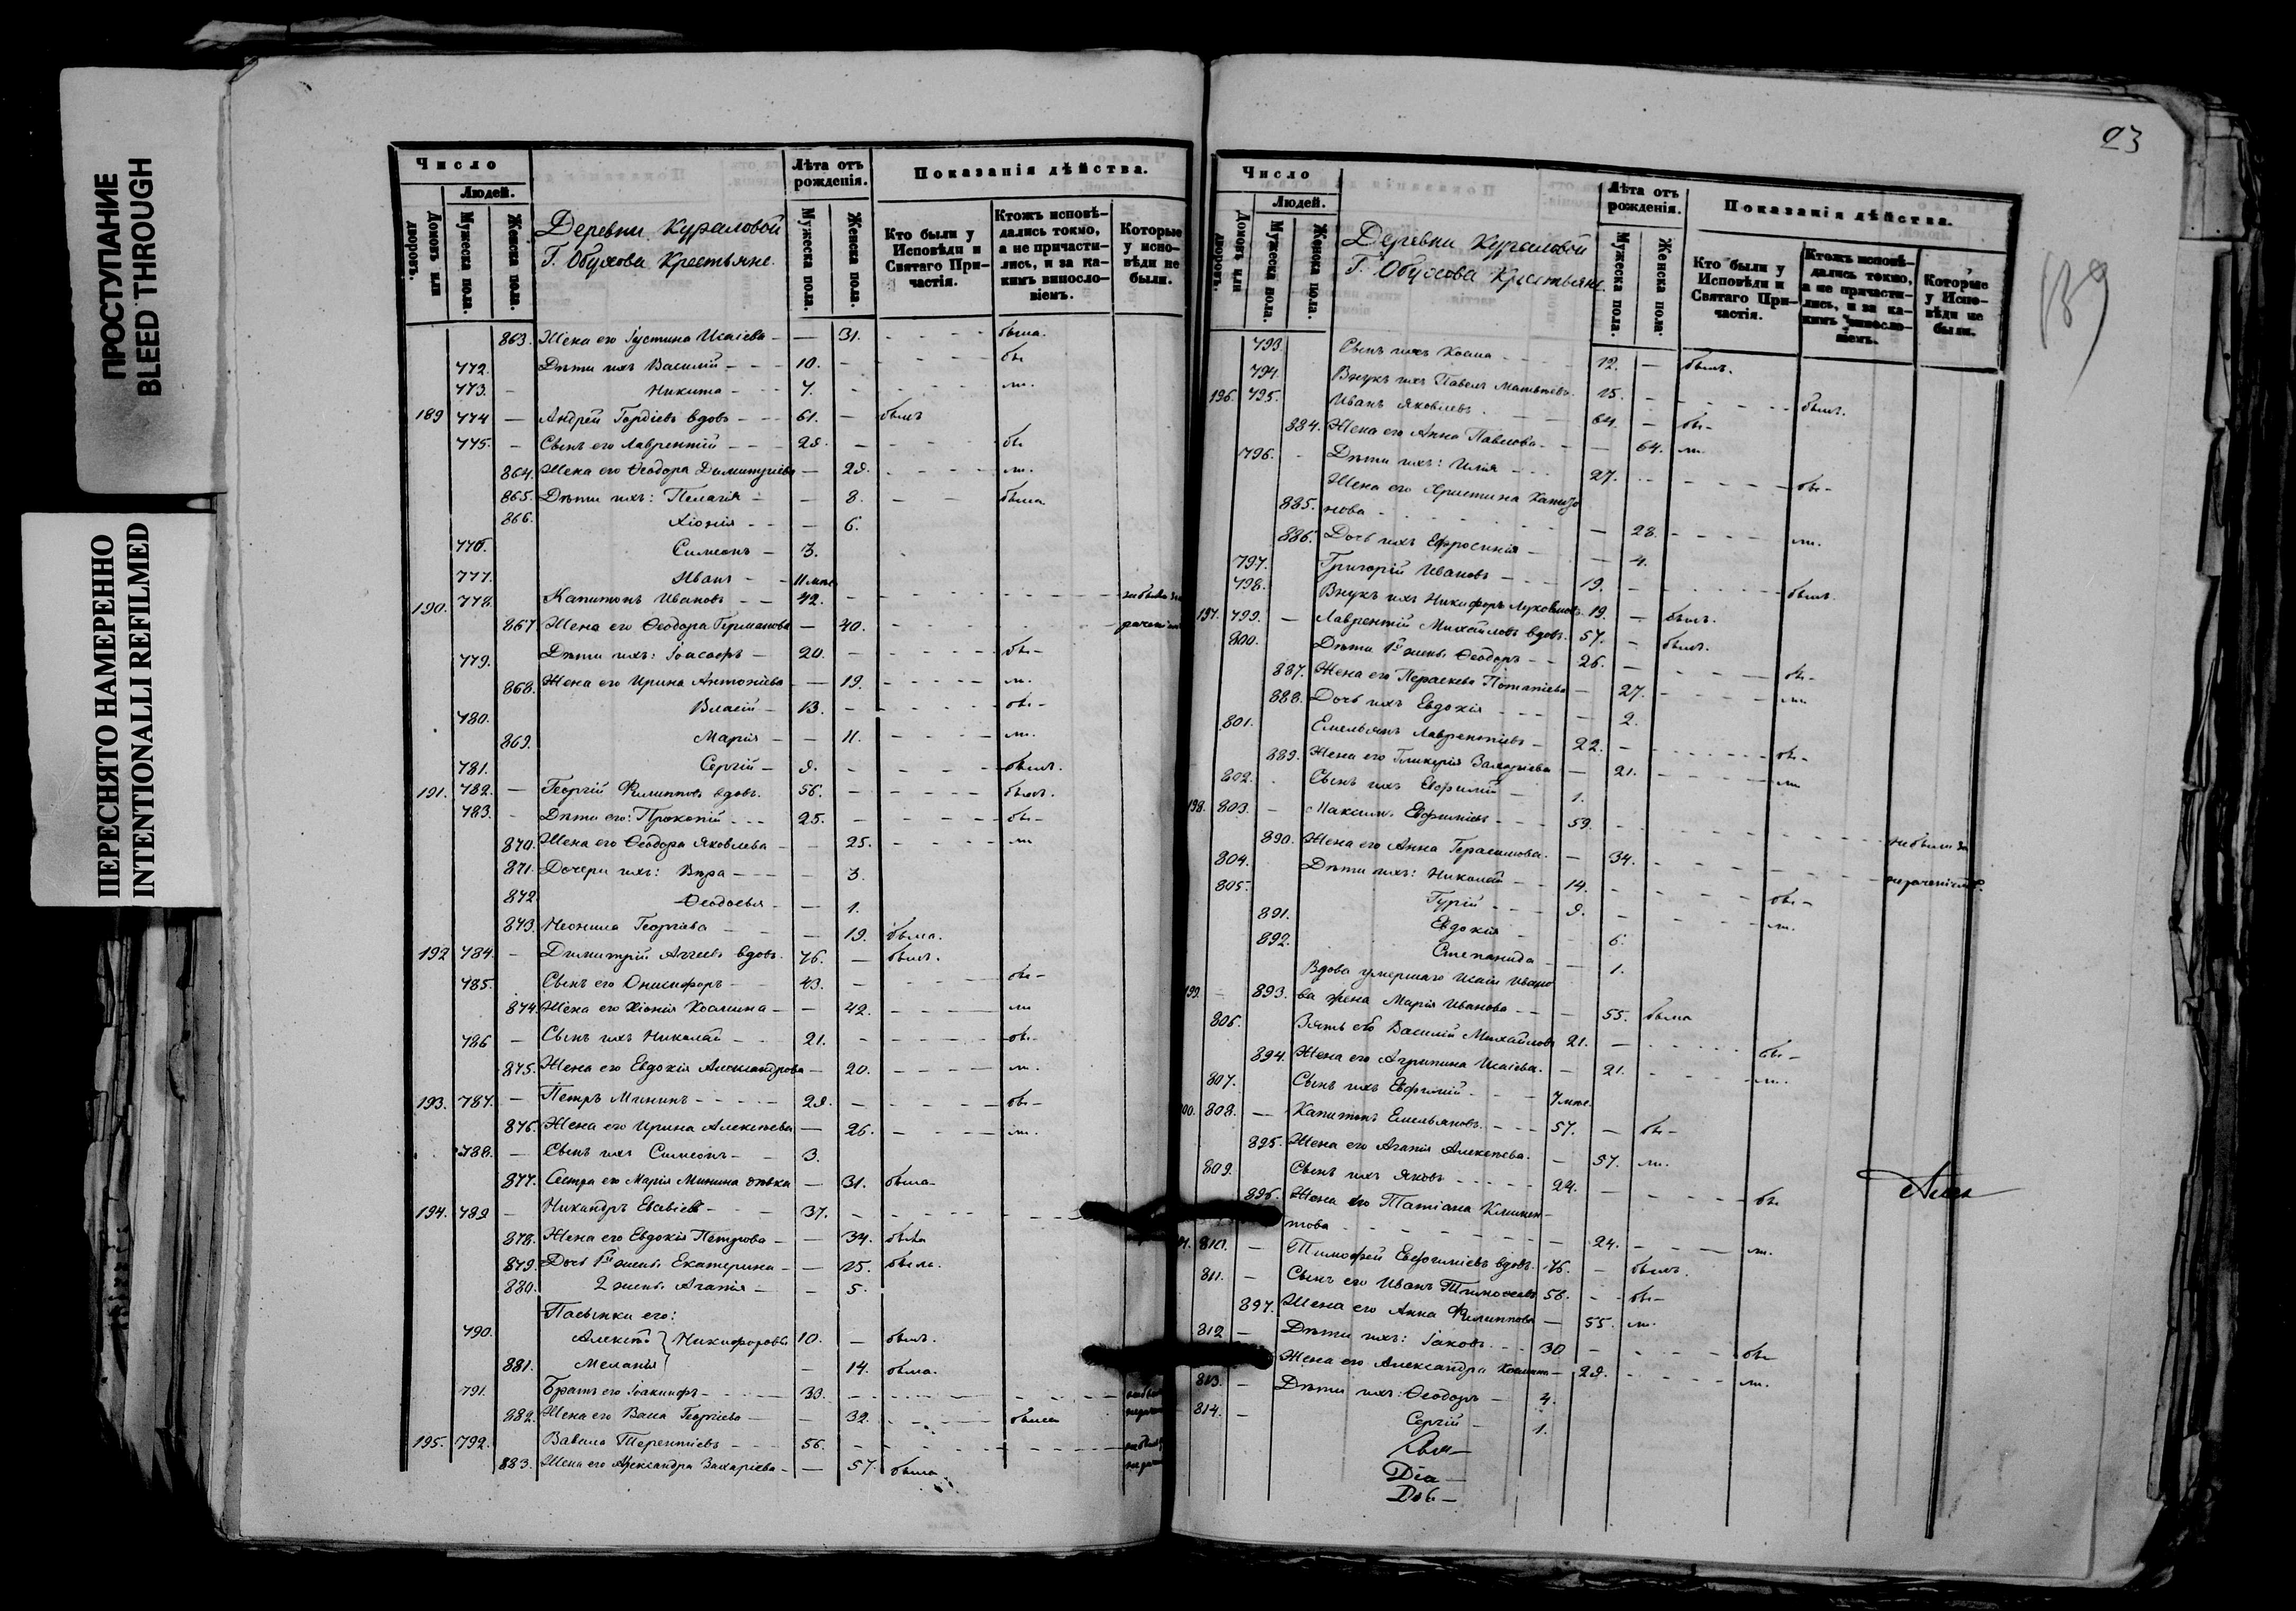 ПРОСТУПАНИЕ
BLEED THROUGH
ПЕРЕСНЯТО НАМЕРЕННО
INTENTIONALLI REFILMED
Число
Людей.
Домовъ или дворовъ.
Мужеска пола.
Женска пола.
Деревни Кураловой
Г. Обухова Крестьяне.
Лѣта отъ рожденія.
Мужеска пола.
Женска пола.
Показанія дѣйства.
Кто были у Исповѣди и Святаго Причастія.
Ктожъ исповѣдались токмо, а не причастились, и за какимъ винословіемъ.
Которые у исповѣди не были.
863. Жена его Іустина Исаіева — 31. была.
772. Дѣти ихъ Василій 10. — бы
773. Никита 7. ли.
189 774 — Андрей Гордіевъ вдовъ 61. — былъ
775. Сынъ его Лаврентій 28. — бы
864. Жена его Ѳеодора Димитріева — 28. ли.
865. Дѣти ихъ: Пелагія — 8. была
866. Хіонія — 6.
776. Симеонъ 3.
777. Иванъ 11 мѣс
190. 778. Капитонъ Ивановъ 42.
867. Жена его Ѳеодора Германова — 40.
779. Дѣти ихъ: Іоасафъ 20. — бы-
868. Жена его Ирина Антоніева — 19. ли.
780. Власій 13. — бы-
869. Марія — 11. ли.
781. Сергій 8. былъ.
191. 782. — Георгій Филипповъ вдовъ. 56. — былъ.
783. Дѣти его: Прокопій 25. — бы-
870. Жена его Ѳеодора Яковлева — 25. ли
871. Дочери ихъ: Вѣра — 3.
872. Ѳеодосья — 1.
873. Неонила Георгіева — 19. была.
192 784. — Димитрій Аггеевъ вдовъ. 76. — былъ.
785. Сынъ его Онисифоръ 43. — бы-
874. Жена его Хіонія Космина — 42. ли
786 — Сынъ ихъ Николай 21. — бы-
875. Жена его Евдокія Александрова — 20. ли.
193. 787. — Петръ Мининъ 28. — бы-
876. Жена его Ирина Алексѣева — 26. ли.
788. — Сынъ ихъ Симеонъ 3.
877. Сестра его Марія Минина дѣвка — 31. была
194. 789 — Никандръ Евсевіевъ 37.
878. Жена его Евдокія Петрова — 34. была
879. Дочь 1й жены Екатерина — 15. была.
880. 2 жены Агапія — 5.
Пасынки его:
790. Алексѣй } Никифоровы 10. — былъ.
881. Меланія — 14. была.
791. Братъ его Іоакимфъ 33.
882. Жена его Васса Георгіева — 32. была
195. 792. Вавило Терентіевъ 56.
883. Жена его Александра Захаріева — 57. была.
23
139
Число
Людей.
Домовъ или дворовъ.
Мужеска пола.
Женска пола.
Деревни Кураловой
Г. Обухова Крестьяне.
Лѣта отъ рожденія.
Мужеска пола.
Женска пола.
Показанія дѣйства.
Кто были у Исповѣди и Святаго Причастія.
Ктожъ исповѣдались токмо, а не причастились, и за какимъ винословіемъ.
Которые у Исповѣди не были.
793. Сынъ ихъ Косма 12. — былъ.
794. Внукъ ихъ Павелъ Матвѣевъ 15. былъ.
196. 795. Иванъ Яковлевъ 64. — бы-
884. Жена его Анна Павлова — 64. ли
796. Дѣти ихъ: Илія 27. бы-
Жена его Христина Капито
885. нова — 28. ли.
886. Дочь ихъ Евфросинія — 4.
797. Григорій Ивановъ 19. былъ
798. Внукъ ихъ Никифоръ 19. — былъ.
197. 799. — Лаврентій Михайловъ вдовъ. 57. — былъ.
800. Дѣти 1й жены Ѳеодоръ 26. — бы-
887. Жена его Параскева Потапіева — 27. ли
888. Дочь ихъ Евдокія — 2.
801. Емельянъ Лаврентіевъ 22. — бы-
889. Жена его Гликерія Захаріева — 21. ли
802. Сынъ ихъ Евфимій 1.
198. 803. — Максимъ Евфиміевъ 59. не были за
890. Жена его Анна Герасимова. — 34. нераченіемъ.
804. Дѣти ихъ: Николай 14. бы-
805. Гурій 8. ли.
891. Евдокія 6.
892. Степанида — 1.
Вдова умершаго Исаіи Ивано
199. — 893. ва жена Марія Иванова — 55. была
806. Зять его Василій Михайловъ 21. — бы-
894. Жена его Агрипина Исаіева. — 21. ли.
807. Сынъ ихъ Евфимій 7 мѣс.
200. 808. — Капитонъ Емельяновъ. 57. — бы-
895. Жена его Агапія Алексѣева. — 57. ли.
809. Сынъ ихъ Яковъ 24. — бы
896. Жена его Татіана Климен-
това — 24. ли.
810. — Тимофей Евфиміевъ вдовъ. 76. — былъ.
811. — Сынъ его Иванъ Тимофеевъ 56. бы-
897. Жена его Анна Филиппова — 55. ли.
812 — Дѣти ихъ: Іаковъ 30 — бы
Жена его Александра Космина — 28. ли.
813. — Дѣти ихъ: Ѳеодоръ 4.
814. — Сергій 1.
Діа—